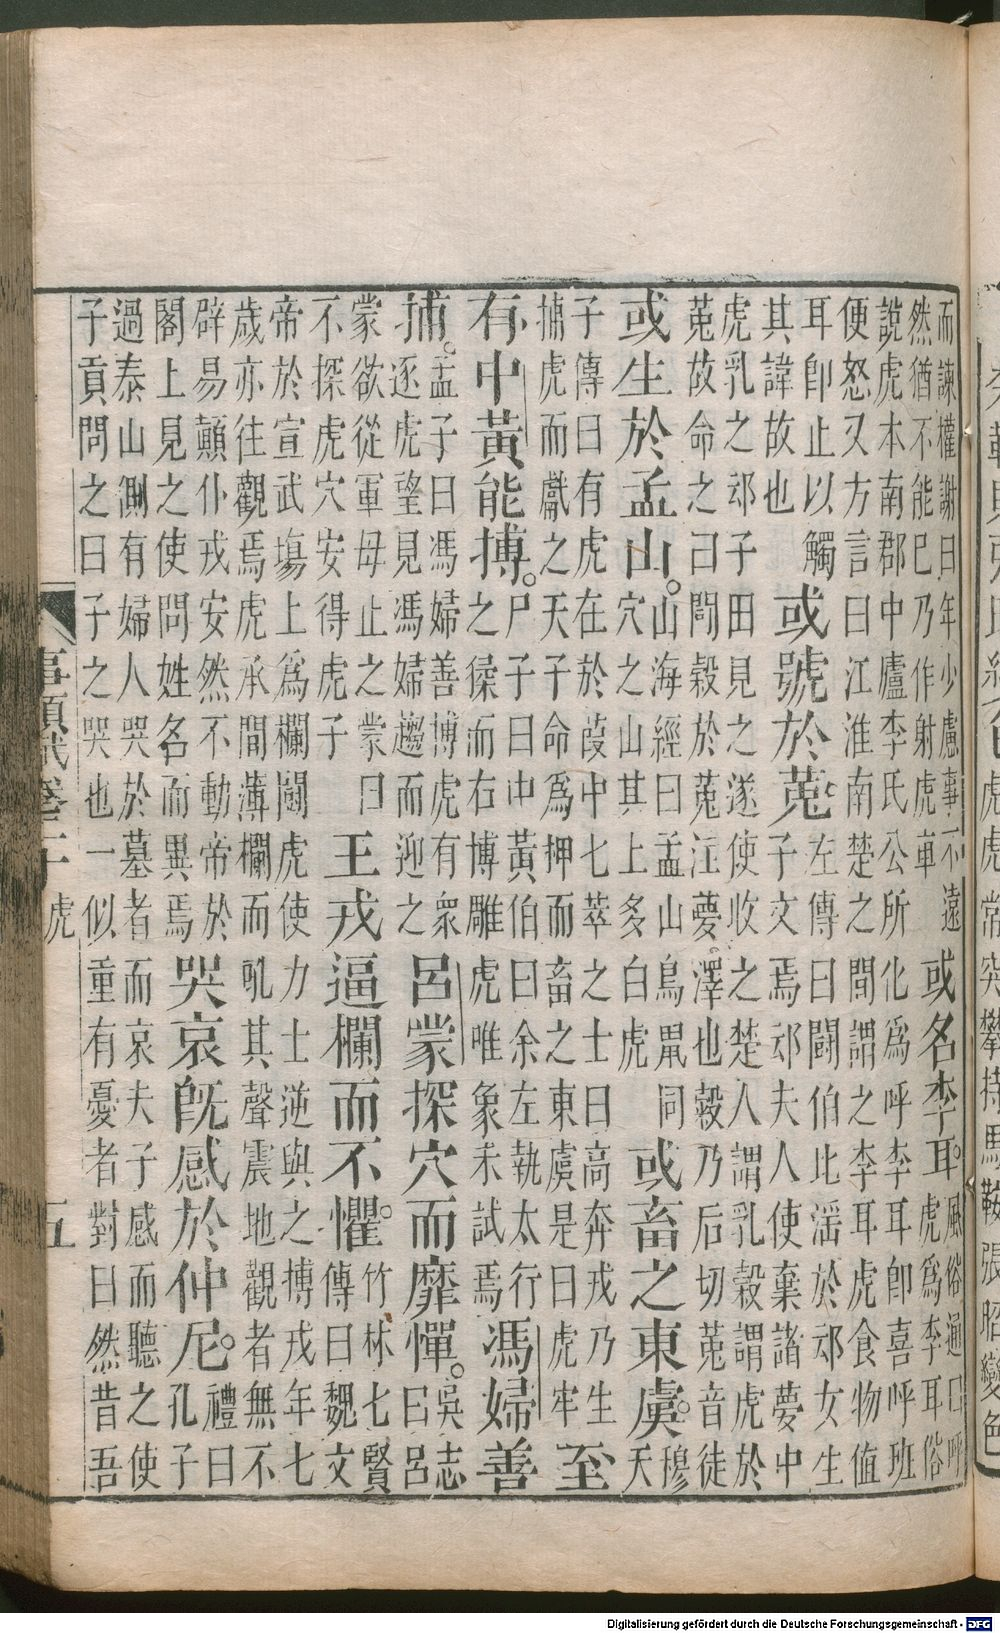 而諫權謝曰年少慮事不遠
然猶不能巳乃作射虎車
或名李耳。
風俗通曰呼
虎爲李耳俗
說虎本南郡中廬李氏公所化爲呼李耳卽喜呼班
便怒又方言曰江淮南楚之間謂之李耳虎食物值
耳卽止以觸
其諱故也
或號於菟。
左傳曰鬪伯比淫於䢵女生
子文焉䢵夫人使棄諸夢中
虎乳之䢵子田見之遂使收之楚人謂乳穀謂虎於
菟故命之曰鬪穀於菟注夢澤也穀乃后切菟音徒
或生於孟山。
山海經曰孟山鳥鼠同
穴之山其上多白虎
或畜之東虞。
穆
天
子傳曰有虎在於葭中七萃之士曰高奔戎乃生
捕虎而獻之天子命爲押而畜之東虞是曰虎牢
至
有中黃能搏。
尸子曰中黃伯曰余左執太行
之猱而右搏雕虎唯象未試焉
馮婦善
捕。
孟子曰馮婦善搏虎有衆
逐虎望見馮婦趨而迎之
呂蒙探穴而靡憚。
吳志
曰呂
蒙欲從軍母止之蒙曰
不探虎穴安得虎子
王戎逼欄而不懼。
竹林七賢
傳曰魏文
帝於宣武塲上爲欄鬪虎使力士逆與之搏戎年七
歲亦往觀焉虎承間薄欄而吼其聲震地觀者無不
辟易顚仆戎安然不動帝於
閣上見之使問姓名而異焉
哭哀旣感於仲尼。
禮曰
孔子
過泰山側有婦人哭於墓者而哀夫子感而聽之使
子貢問之曰子之哭也一似重有憂者對曰然昔吾
事類賦卷二十 虎 五
虎虎常突攀持馬鞍張昭變色
Digitalisierung gefördert durch die Deutsche Forschungsgemeinschaft - DFG